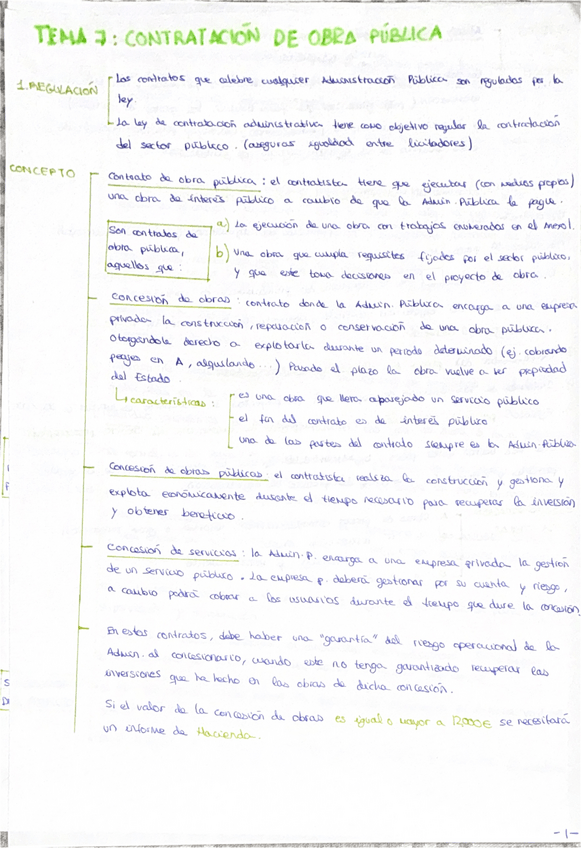 TEMA 7: CONTRATACIÓN DE OBRA PÚBLICA
1. REGULACIÓN
- Los contratos que celebre cualquier Administración Pública son regulados por la
ley.
- La ley de contratación administrativa tiene como objetivo regular la contratación
del sector público. (aseguras igualdad entre licitadores)
CONCEPTO
Contrato de obra pública: el contratista tiene que ejecutar (con medios propios)
una obra de interés público a cambio de que la Admin. Pública le pague.
Son contratos de
obra pública,
aquellos que:
a) La ejecución de una obra con trabajos enumerados en el Anexo I.
b) Una obra que cumpla requisitos fijados por el sector público,
y que este toma decisiones en el proyecto de obra.
Concesión de obras: contrato donde la Admin. Pública encarga a una empresa
privada la construcción, reparación o conservación de una obra pública.
Otorgándole derecho a explotarla durante un periodo determinado (ej. cobrando
peajes en A, alquilando ...) Pasado el plazo la obra vuelve a ser propiedad
del Estado.
características:
- es una obra que lleva aparejado un servicio público
- el fin del contrato es de interés público
- una de las partes del contrato siempre es la Admin. Pública
Concesión de obras públicas: el contratista realiza la construcción y gestiona y
explota económicamente durante el tiempo necesario para recuperar la inversión
y obtener beneficio.
Concesión de servicios: la Admin. p. encarga a una empresa privada la gestión
de un servicio público. La empresa p. deberá gestionar por su cuenta y riesgo,
a cambio podrá cobrar a los usuarios durante el tiempo que dure la concesión.
En estos contratos, debe haber una "garantía" del riesgo operacional de la
Admin. al concesionario, cuando este no tenga garantizado recuperar las
inversiones que ha hecho en las obras de dicha concesión.
Si el valor de la concesión de obras es igual o mayor a 12.000€ se necesitará
un informe de Hacienda.
-1-